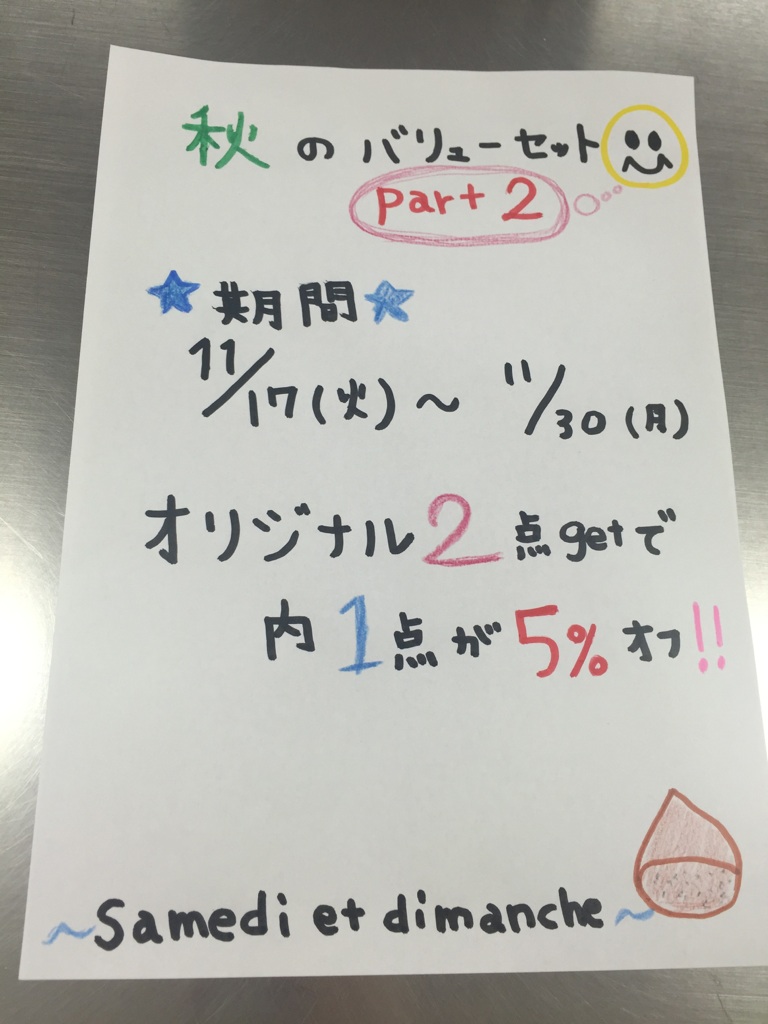 秋のバリューセット
part 2
★期間★
11/17(火)～ 11/30(月)
オリジナル2点getで
内1点が5%オフ!!
～Samedi et dimanche～